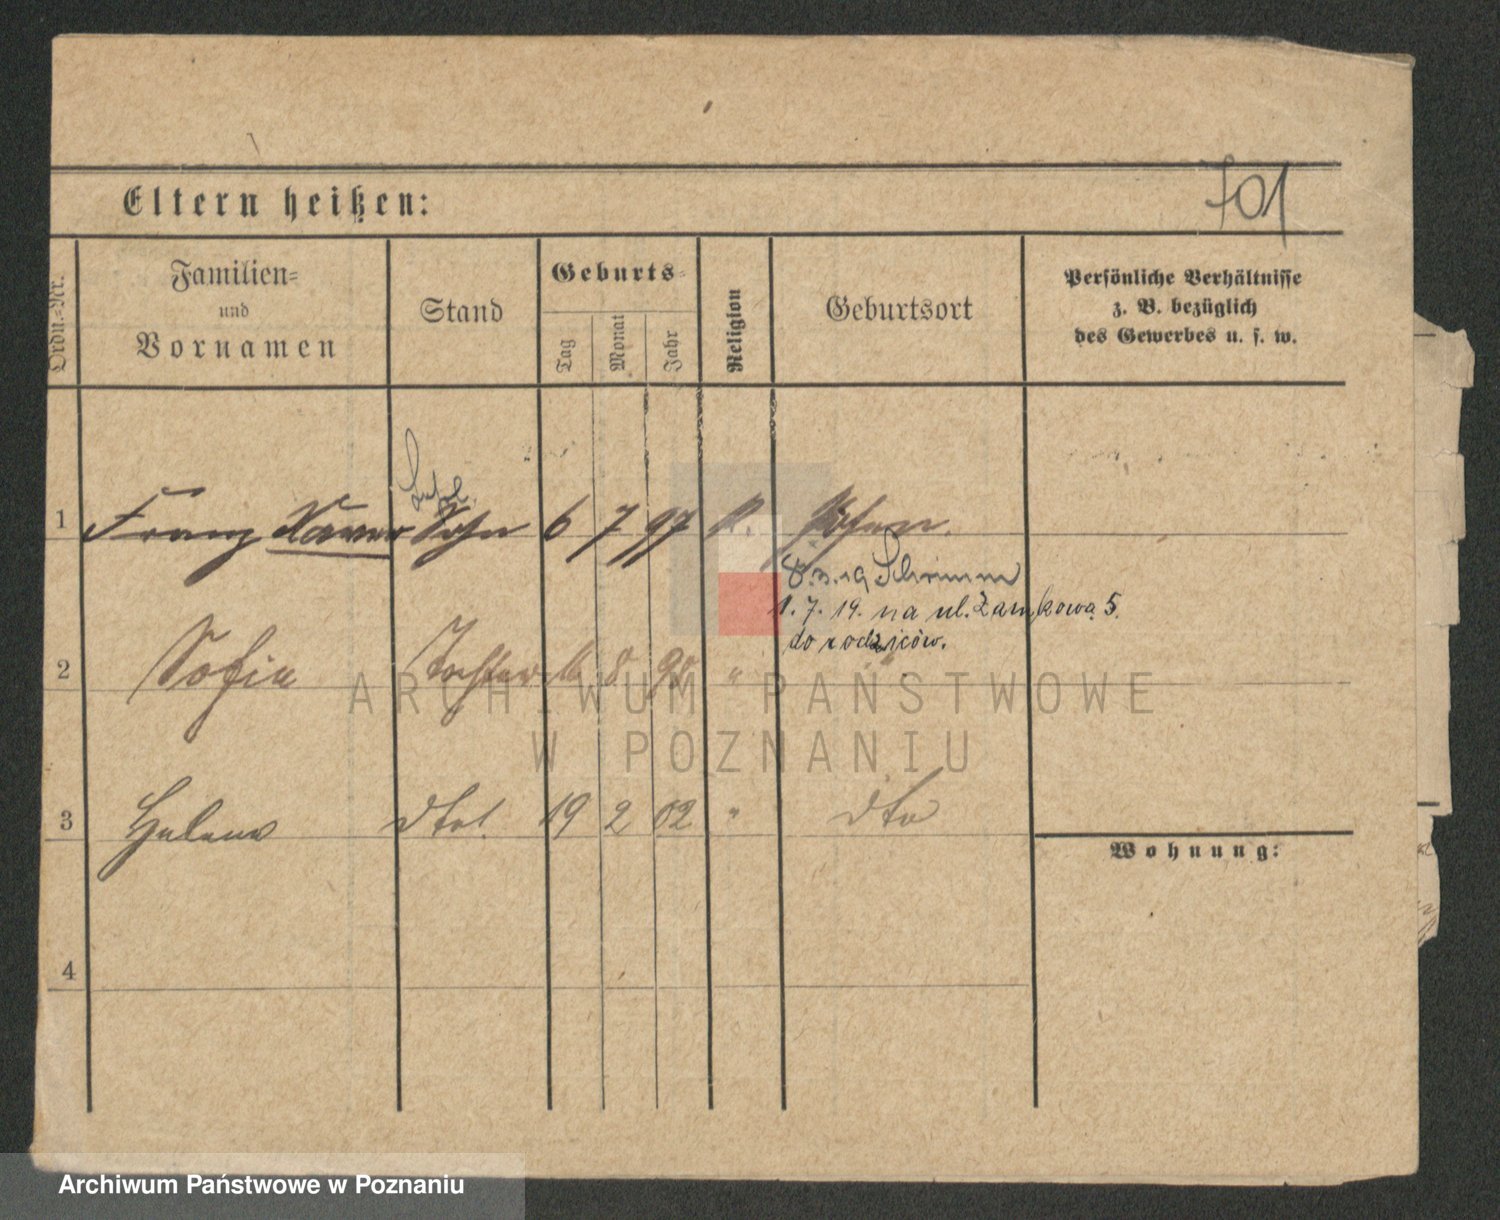 701
Eltern heißen:
Ordn.-Nr.
Familien-
und
Vornamen
Stand
Geburts-
Tag
Monat
Jahr
Religion
Geburtsort
Persönliche Verhältnisse
z. B. bezüglich
des Gewerbes u. s. w.
1 Franz Xaver Sohn 6 7 97 k. Posen.
8.3.19 Schrimm
1.7.19. na ul. Zamkowa 5.
do rodziców.
2 Sofia Tochter 8 98 "
3 Helena dto. 19 2 02 " dto
Wohnung:
4
ARCHIWUM PAŃSTWOWE
W POZNANIU
Archiwum Państwowe w Poznaniu